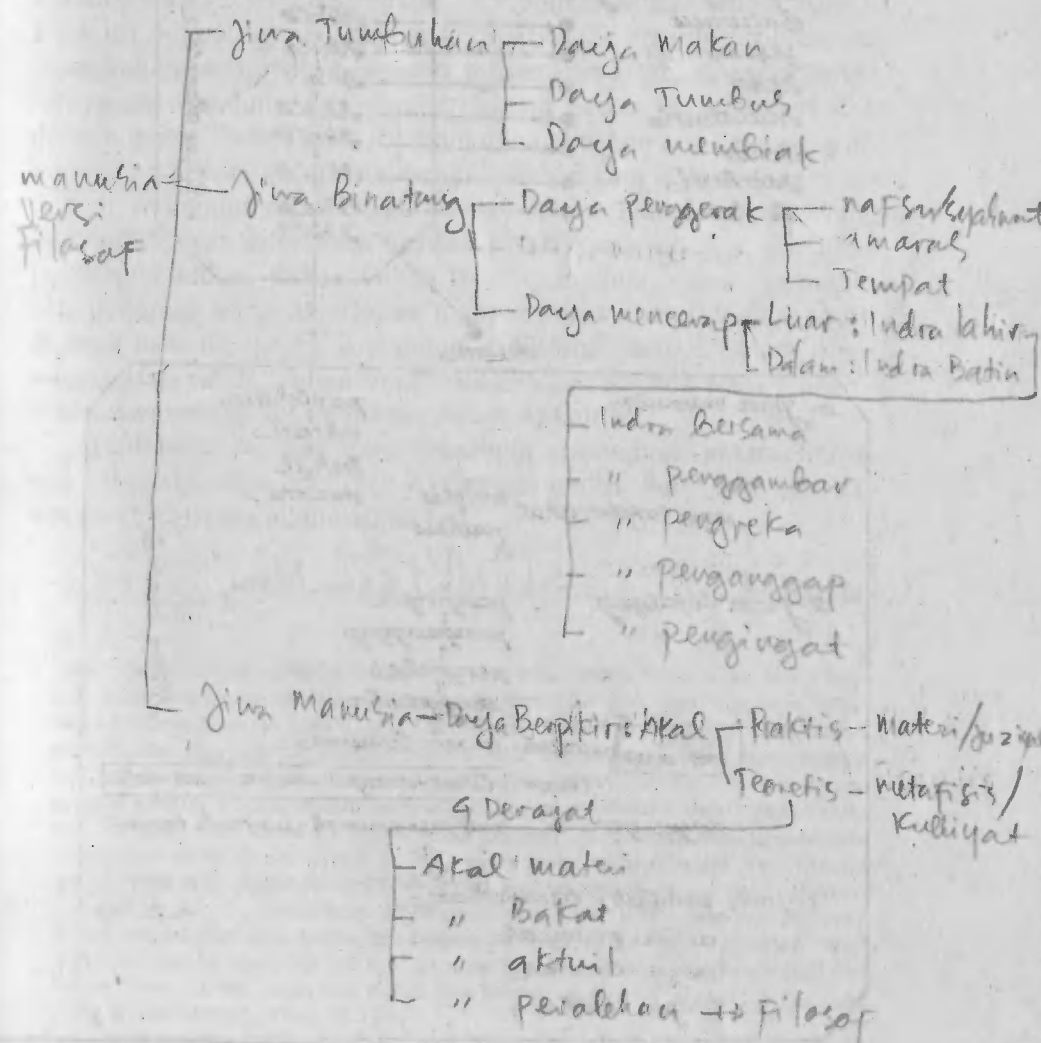 Jiwa Tumbuhan
Daya makan
Daya Tumbuh
Daya membiak
manusia
versi
Filosof
Jiwa Binatang
Daya penggerak
nafsu/syahwat
amarah
Tempat
Daya mencerap
Luar : Indra lahir
Dalam : Indra Batin
Indra Bersama
" penggambar
" pengreka
" penganggap
" pengingat
Jiwa Manusia - Daya Berpikir : Akal
Praktis - materi/juziyat
Teoretis - metafisis/
Kulliyat
4 Derajat
Akal materi
" Bakat
" aktuil
" perolehan → Filosof